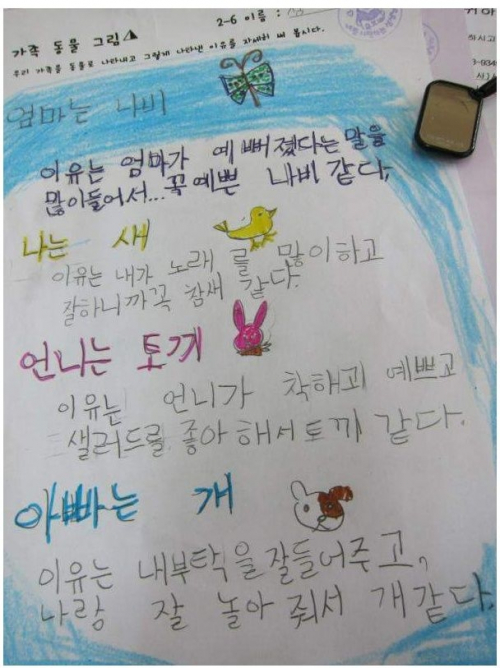 2-6 이름 :
가족 동물 그림
우리 가족을 동물로 나타내고 그렇게 나타낸 이유를 자세히 써 봅시다.
엄마는 나비
이유는 엄마가 예뻐졌다는 말을
많이들어서...꼭예쁜 나비 같다,
나는 새
이유는 내가 노래를 많이하고
잘하니까꼭 참새 같다.
언니는 토끼
이유는 언니가 착해괴 예쁘고
샐러드를 좋아해서토끼 같다.
아빠는 개
이유는 내부탁을잘들어주고,
나랑 잘 놀아줘서 개같다.